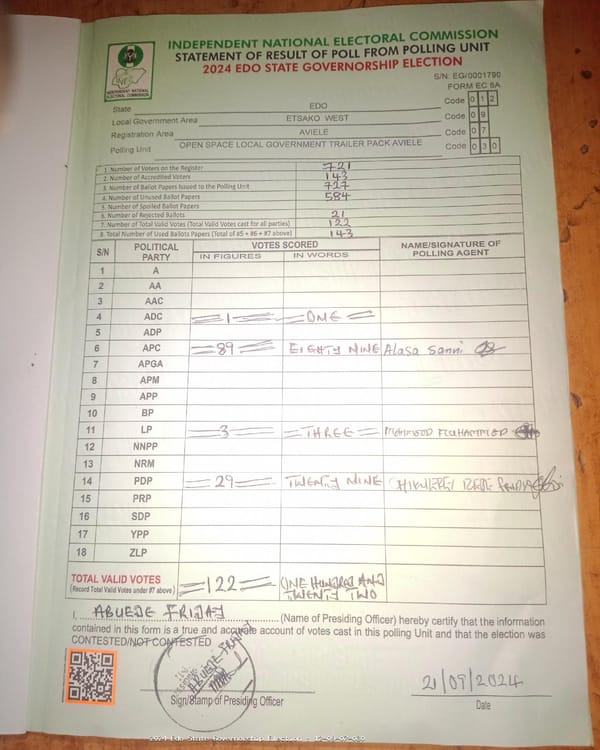 INDEPENDENT NATIONAL ELECTORAL COMMISSION
STATEMENT OF RESULT OF POLL FROM POLLING UNIT
2024 EDO STATE GOVERNORSHIP ELECTION
INDEPENDENT NATIONAL ELECTORAL COMMISSION
S/N: EG/0001790
FORM EC 8A
State EDO Code 0 1 2
Local Government Area ETSAKO WEST Code 0 9
Registration Area AVIELE Code 0 7
Polling Unit OPEN SPACE LOCAL GOVERNMENT TRAILER PACK AVIELE Code 0 3 0
1. Number of Voters on the Register 721
2. Number of Accredited Voters 143
3. Number of Ballot Papers Issued to the Polling Unit 727
4. Number of Unused Ballot Papers 584
5. Number of Spoiled Ballot Papers
6. Number of Rejected Ballots 21
7. Number of Total Valid Votes (Total Valid Votes cast for all parties) 122
8. Total Number of Used Ballots Papers (Total of #5 + #6 + #7 above) 143
S/N POLITICAL PARTY VOTES SCORED NAME/SIGNATURE OF POLLING AGENT
IN FIGURES IN WORDS
1 A
2 AA
3 AAC
4 ADC 1 ONE
5 ADP
6 APC 89 EIGHTY NINE Alasa Sanni
7 APGA
8 APM
9 APP
10 BP
11 LP 3 THREE
12 NNPP
13 NRM
14 PDP 29 TWENTY NINE
15 PRP
16 SDP
17 YPP
18 ZLP
TOTAL VALID VOTES 122 ONE HUNDRED AND TWENTY TWO
(Record Total Valid Votes under #7 above)
I, ABUEJE FRIJAJ (Name of Presiding Officer) hereby certify that the information
contained in this form is a true and accurate account of votes cast in this polling Unit and that the election was
CONTESTED/NOT CONTESTED
Sign/Stamp of Presiding Officer
21/09/2024
Date